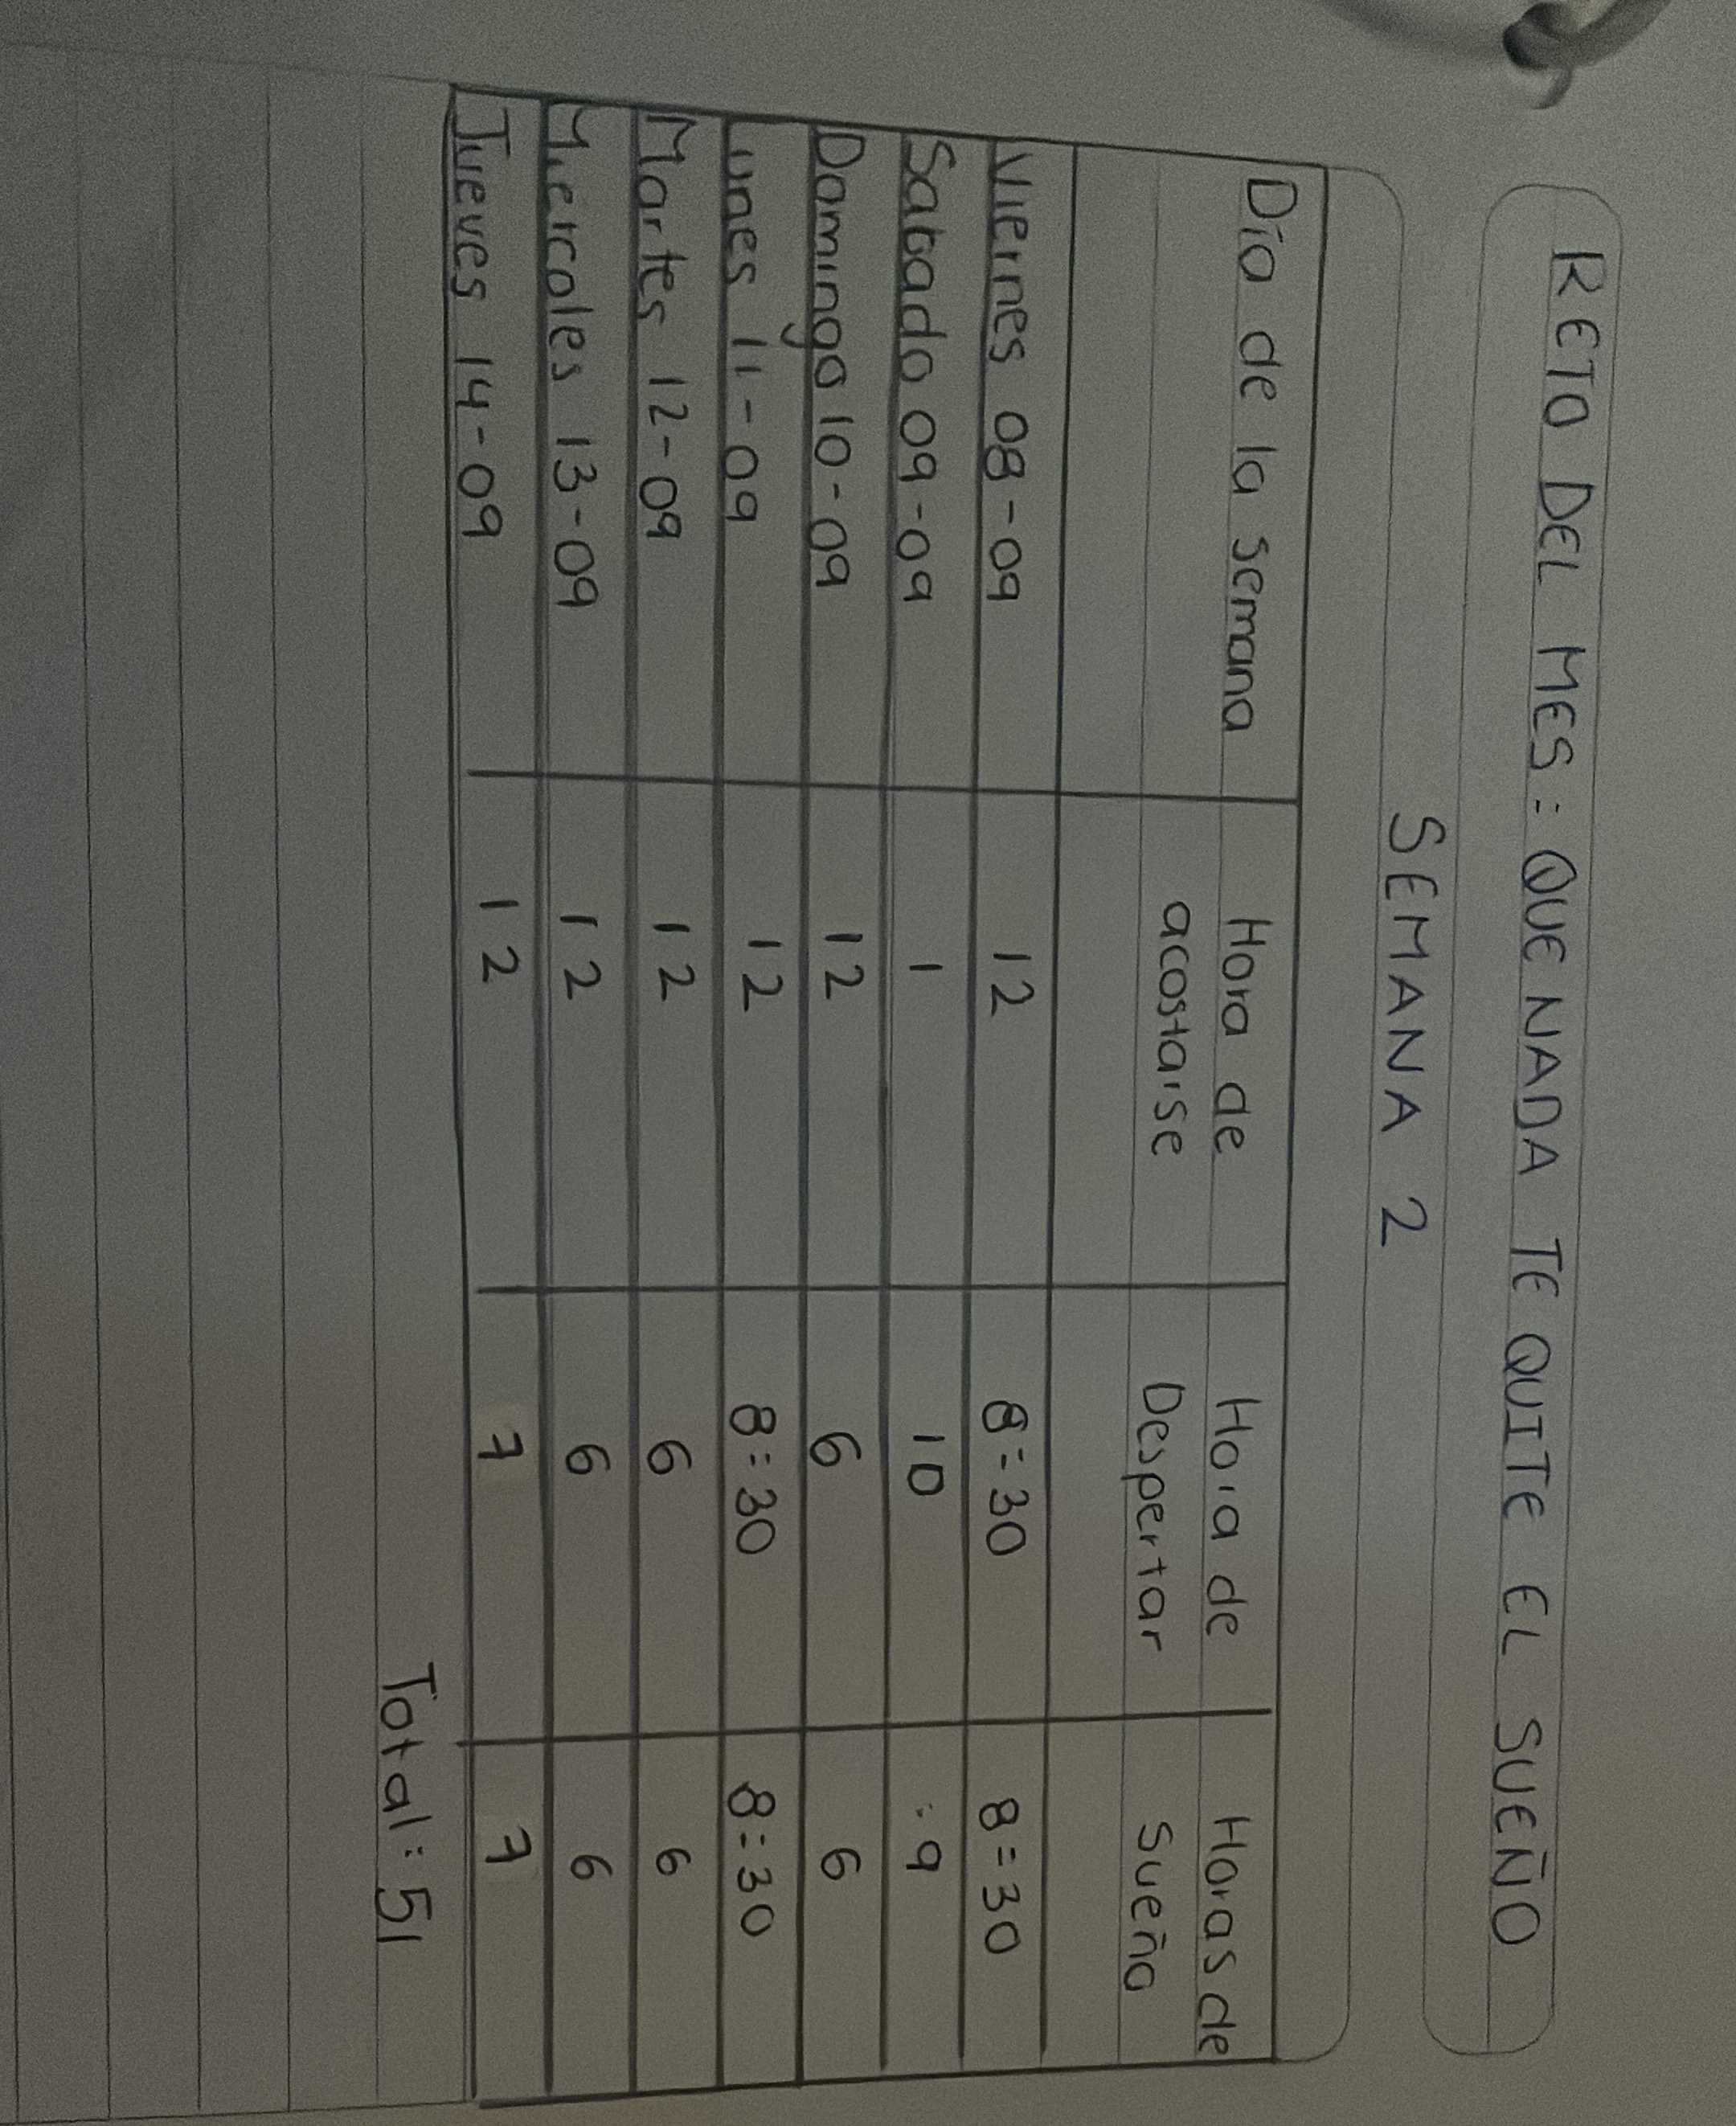 RETO DEL MES: QUE NADA TE QUITE EL SUEÑO
SEMANA 2
Día de la semana Hora de acostarse Hora de Despertar Horas de Sueño
Viernes 08-09 12 8:30 8:30
Sabado 09-09 1 10 9
Domingo 10-09 12 6 6
Lunes 11-09 12 8:30 8:30
Martes 12-09 12 6 6
Miercoles 13-09 12 6 6
Jueves 14-09 12 7 7
Total: 51